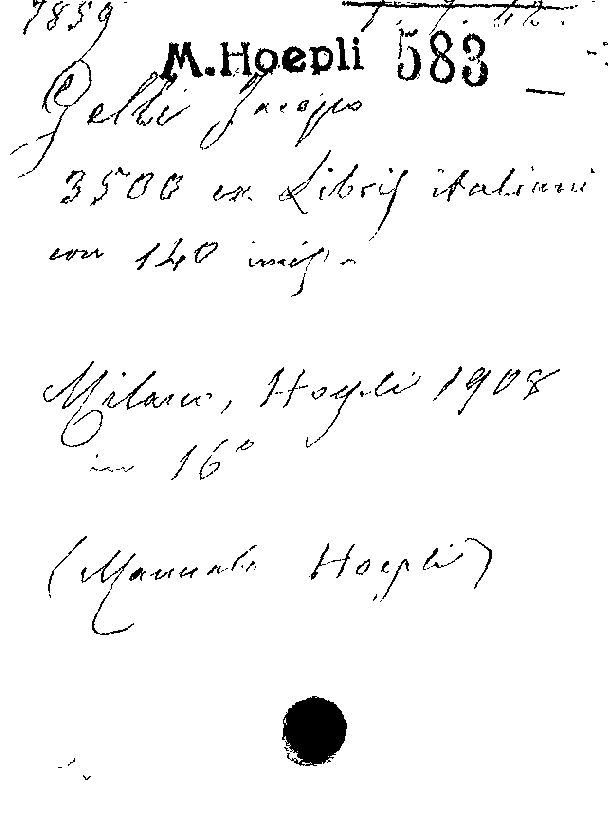 7859
M. Hoepli 583
Gelli Jacopo
3500 ex Libris italiani
con 140 incis.
Milano, Hoepli 1908
in 16°
(Manuale Hoepli)